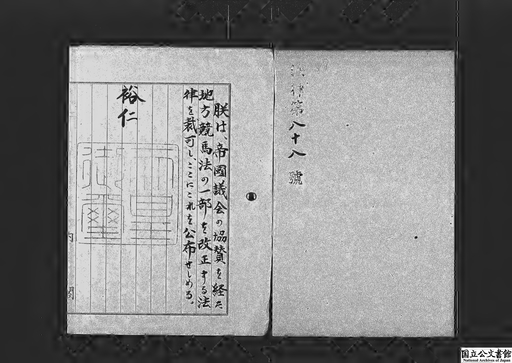 法律第八十八號
朕は、帝國議会の協賛を経た
地方競馬法の一部を改正する法
律を裁可し、ここにこれを公布せしめる。
裕仁
天皇御璽
内閣
国立公文書館
National Archives of Japan